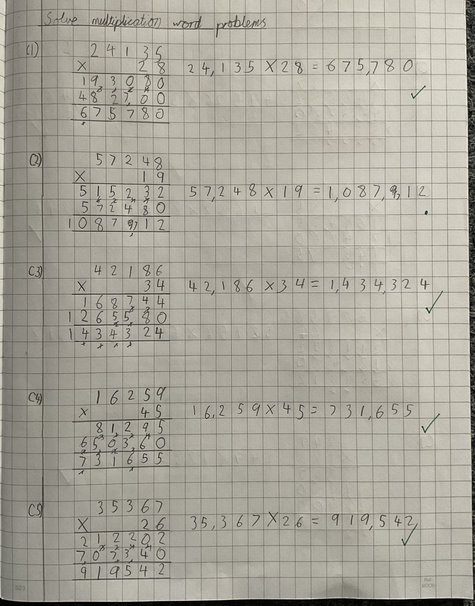 Solve multiplication word problems
(1) 24135
× 28
193080
482700
675780
24,135 × 28 = 675,780
(2) 57248
× 19
515232
572480
1087712
57,248 × 19 = 1,087,712
(3) 42186
× 34
168744
1265580
1434324
42,186 × 34 = 1,434,324
(4) 16259
× 45
81295
650360
731655
16,259 × 45 = 731,655
(5) 35367
× 26
212202
707340
919542
35,367 × 26 = 919,542